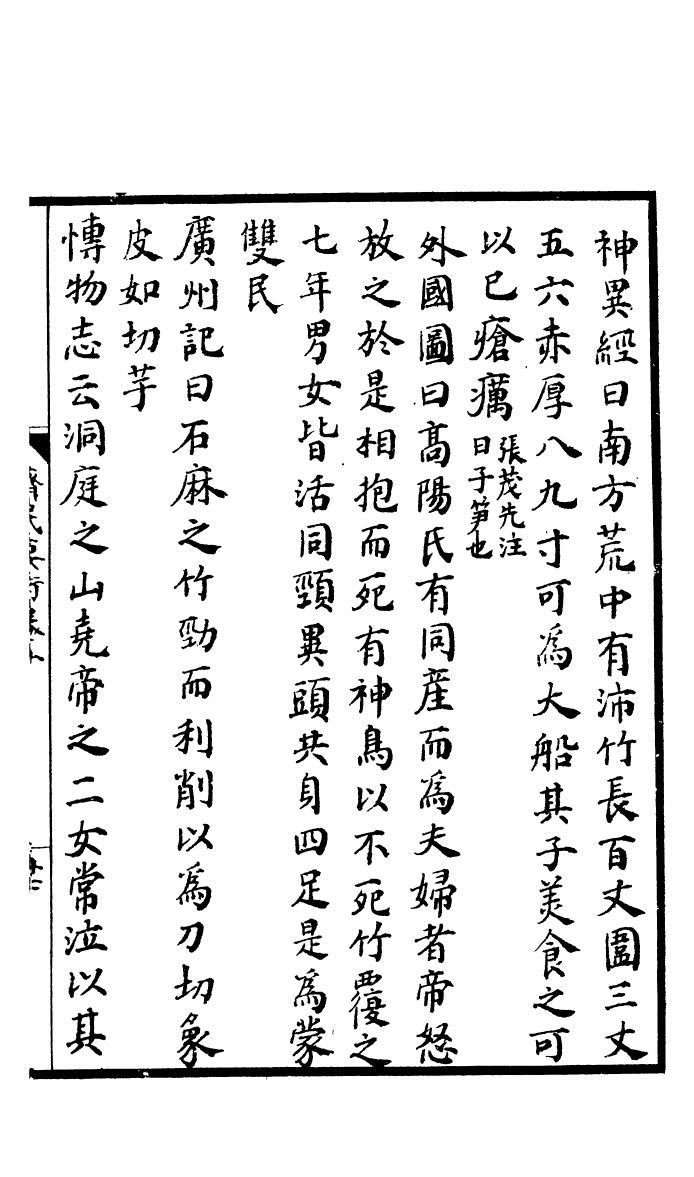 神異經曰南方荒中有沛竹長百丈圍三丈
五六赤厚八九寸可為大船其子美食之可
以已瘡癘張茂先注
曰子笋也
外國圖曰高陽氏有同産而為夫婦者帝怒
放之於是相抱而死有神鳥以不死竹覆之
七年男女皆活同頸異頭共身四足是為蒙
雙民
廣州記曰石麻之竹勁而利削以為刀切象
皮如切芋
愽物志云洞庭之山堯帝之二女常泣以其